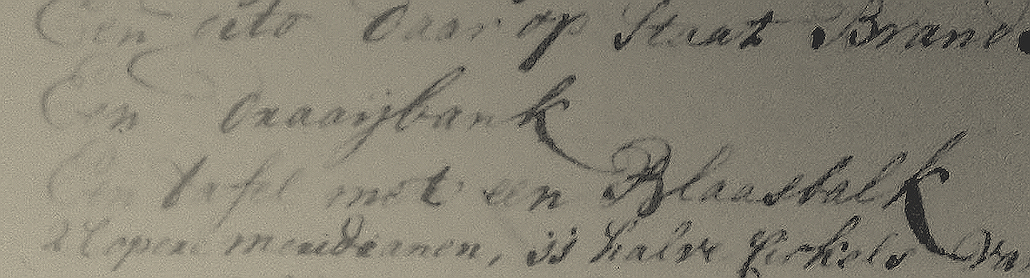 Een dito daar op Staat Brand
Een draaijbank
Een tafel met een Blaasbalk
2 Copere meridianen, 33 halve Cirkels va